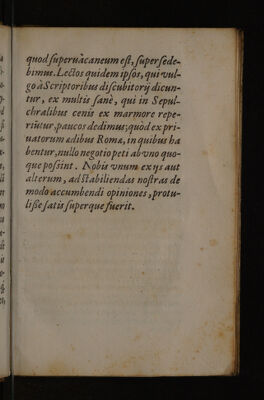 quod ſuperuàcaneum eſt, ſuperſede-
bimus. Lectos quidem ipſos, qui vul-
gò à Scriptoribus diſcubitorij dicun-
tur, ex multis ſanè, qui in Sepul-
chralibus cenis ex marmore repe-
riũtur, paucos dedimus; quòd ex pri-
uatorum ædibus Romæ, in quibus ha
bentur, nullo negotio peti ab vno quo-
que poſsint. Nobis vnum ex ijs aut
alterum, ad ſtabiliendas noſtras de
modo accumbendi opiniones, protu-
liſſe ſatis ſuperque fuerit.